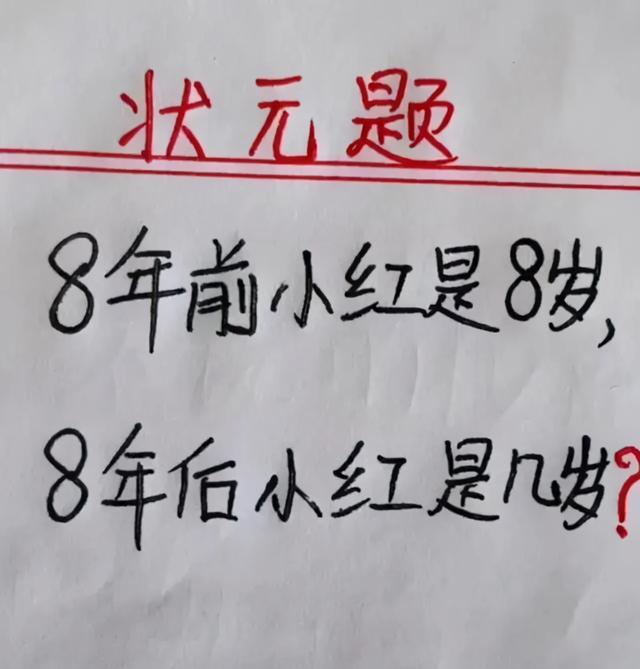 状元题
8年前小红是8岁,
8年后小红是几岁?